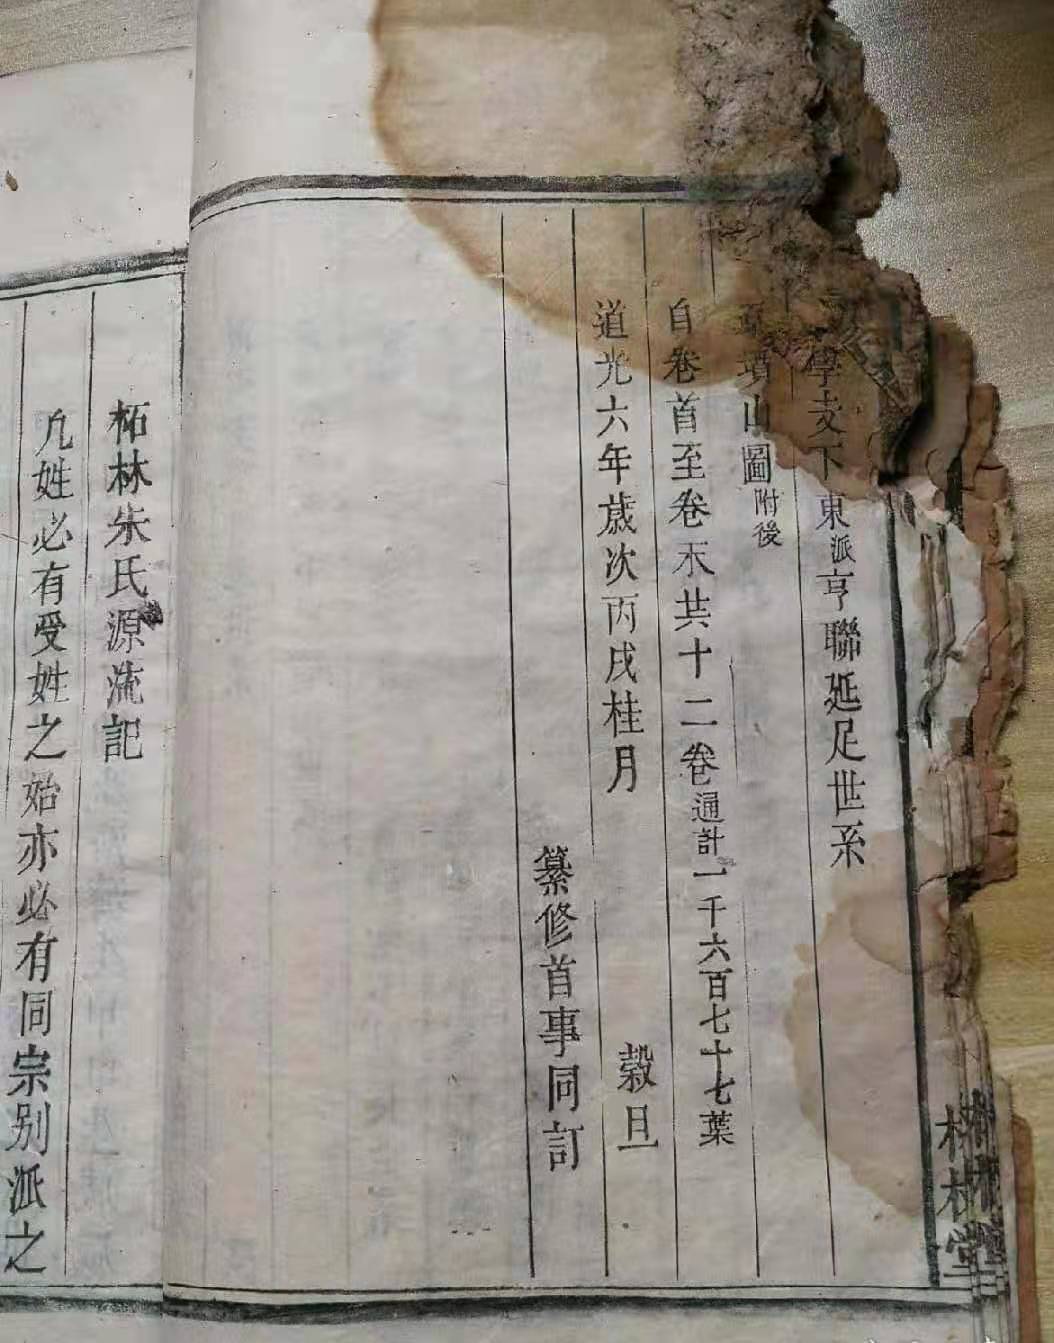 學支下東派亨聯延足世系
墳山圖附後
自卷首至卷末共十二卷通計一千六百七十七葉
道光六年歲次丙戌桂月 穀旦
纂修首事同訂
柘林朱氏源流記
凡姓必有受姓之始亦必有同宗别派之
柘林堂